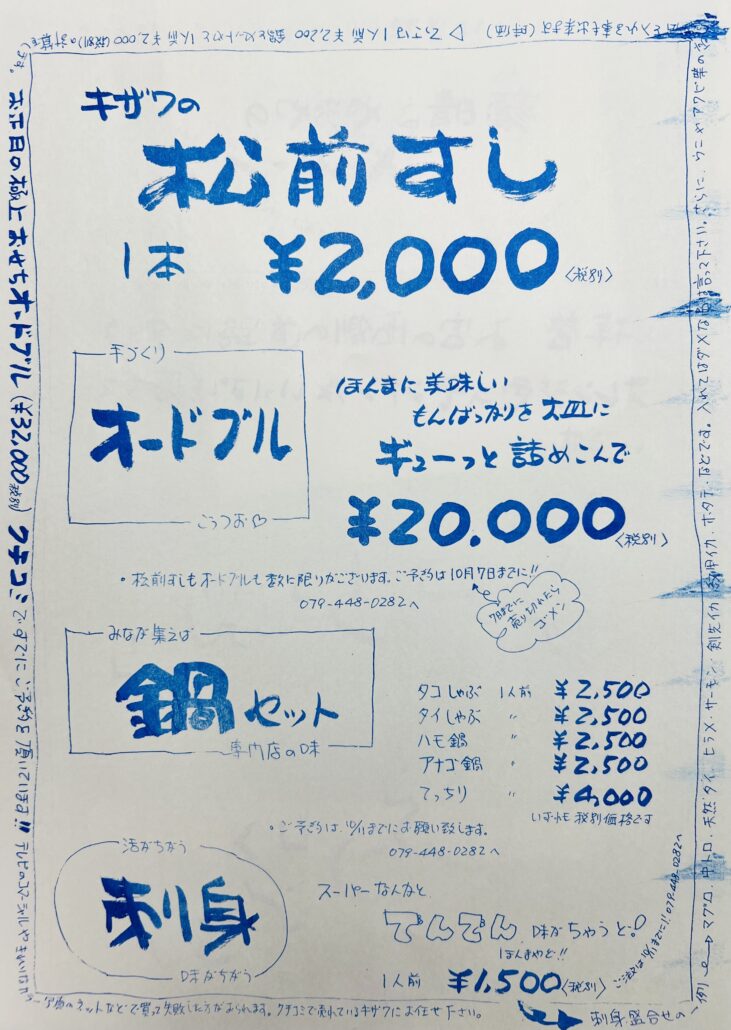 キザワの
松前すし
1本 ¥2,000〈税別〉
手づくり
オードブル
ごっつお♡
ほんまに美味しい
もんばっかりを大皿に
ギューっと詰めこんで
¥20.000〈税別〉
・松前すしもオードブルも数に限りがございます。ご予約は10月7日までに!!
079-448-0282へ
7日までに
売り切れたら
ゴーメン
みなな集えば
鍋セット
専門店の味
タコしゃぶ 1人前 ¥2,500
タイしゃぶ 〃 ¥2,500
ハモ鍋 〃 ¥2,500
アナゴ鍋 〃 ¥2,500
てっちり 〃 ¥4,000
いずれも税別価格です
・ご予約は、10/11までにお願い致します。
079-448-0282へ
活がちがう
刺身
味がちがう
スーパーなんなと
でんでん味がちゃうど!
ほんまやど!!
1人前 ¥1,500〈税別〉
までに!! 079-448-0282へ
刺身盛合せの一例
マグロ、中トロ、天然タイ、ヒラメ、サーモン、剣先イカ、紋甲イカ、ホタテ、などです。入れてはダメな品は言って下さい。さらに、ウニやアワビ等の
入れる事も出来ます(時価)
▷ てっさは1人前¥2,200 鍋とセットやと1人前¥2,000(税別)の計算をします。
お正月の極上おせちオードブル(¥32,000税別)クチコミですでにご予約を頂いています!!テレビのコマーシャルやきれいな
ネットなどで買って失敗した方がおられます。クチコミで売れているキザワにお任せ下さい。